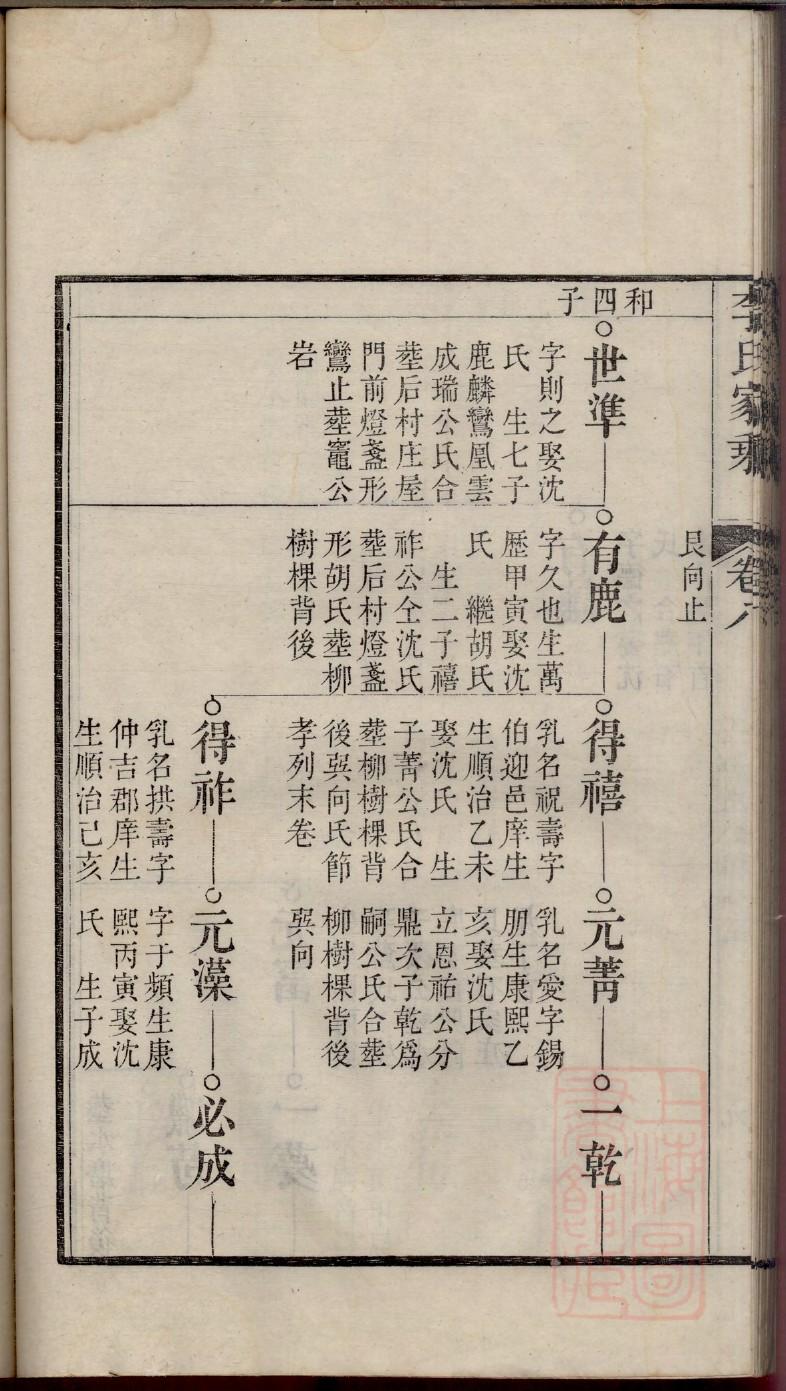 李氏家乘
卷八
艮向止
和四子
世準
字則之娶沈
氏 生七子
鹿麟鸞凰雲
成瑞公氏合
塟后村庄屋
門前燈盞形
鸞止塟竈公
岩
有鹿
字久也生萬
歷甲寅娶沈
氏 繼胡氏
生二子禧
祚公仝沈氏
塟后村燈盞
形胡氏塟柳
樹棵背後
得禧
乳名祝壽字
伯迎邑庠生
生順治乙未
娶沈氏 生
子菁公氏合
塟柳樹棵背
後巽向氏節
孝列末卷
元菁
乳名愛字錫
朋生康熙乙
亥娶沈氏
立恩祐公分
鼎次子乾爲
嗣公氏合塟
柳樹棵背後
巽向
一乾
得祚
乳名拱壽字
仲吉郡庠生
生順治己亥
元藻
字于頻生康
熙丙寅娶沈
氏 生子成
必成